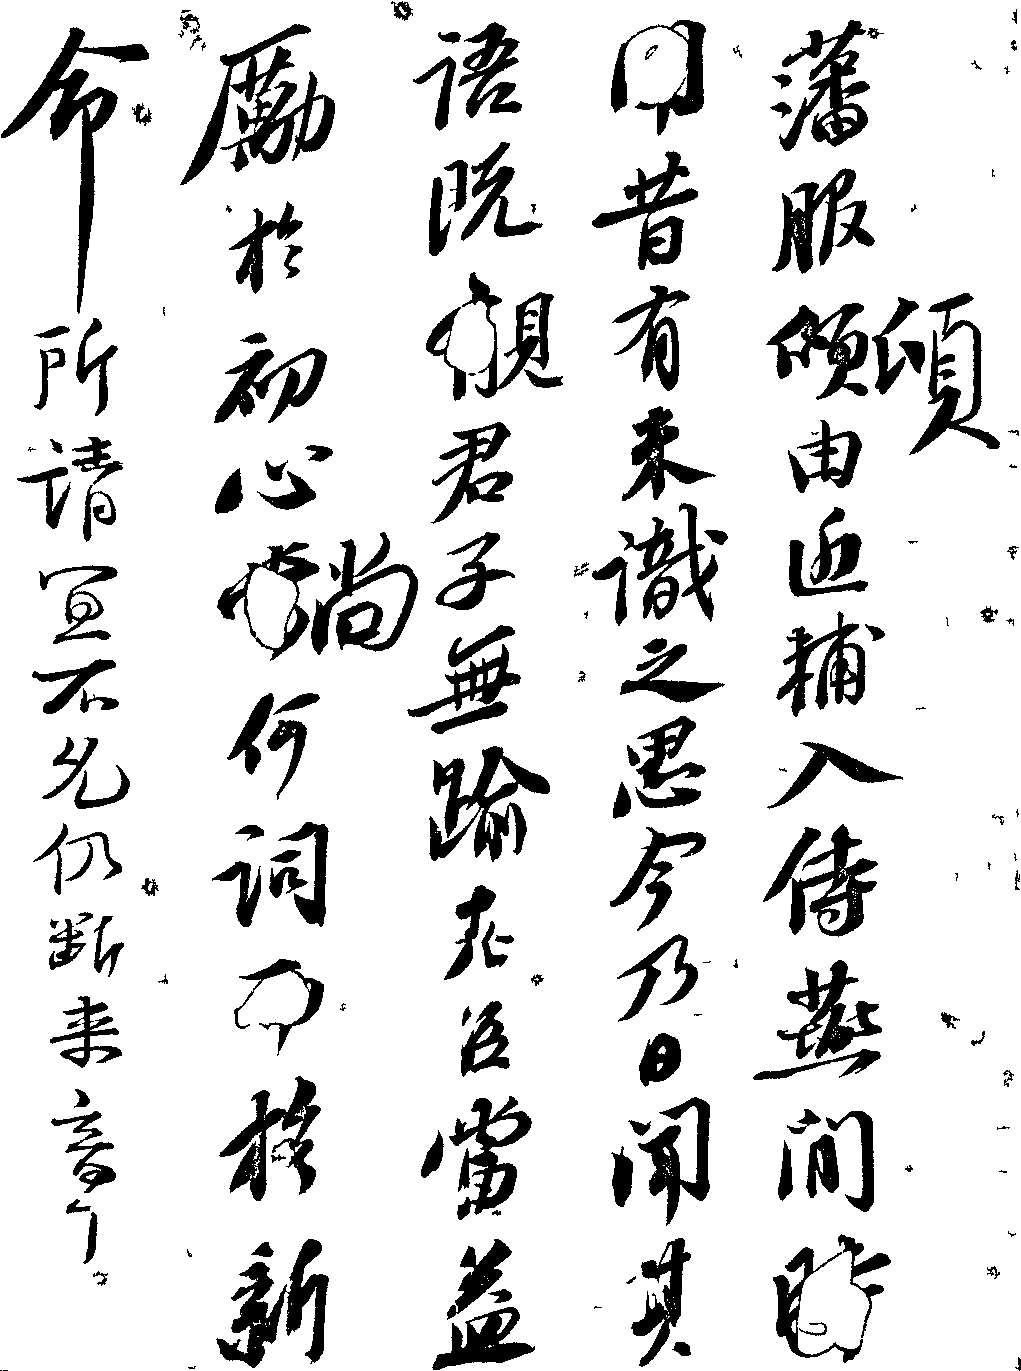 藩服頃由近輔入侍燕間時
昔有未識之思今乃日聞其
語既君子無踰老臣當益
勵於初心尚何詞新
命所請宜不允仍斷來章